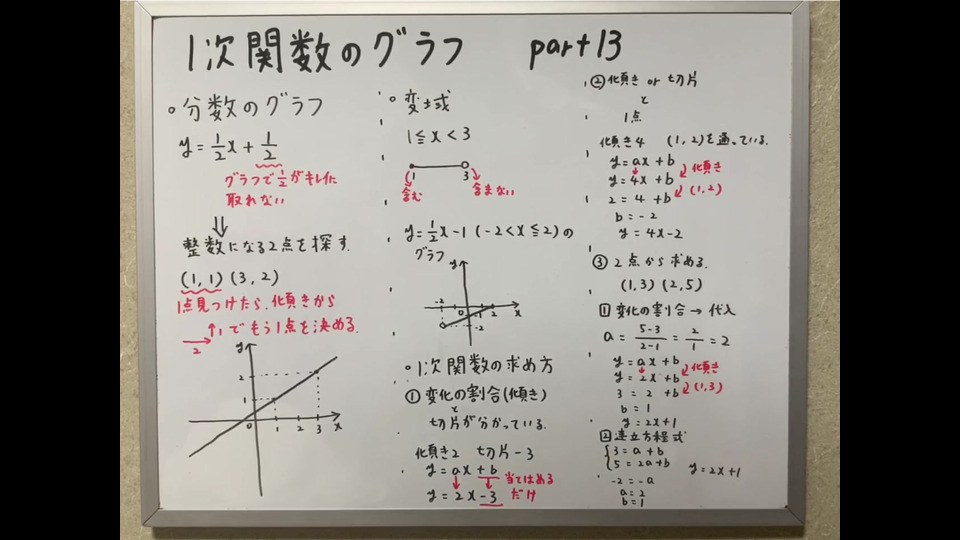 1次関数のグラフ part13
○分数のグラフ
y=1/2x+1/2
グラフで1/2がキレイに
取れない
⇓
整数になる2点を探す.
(1,1)(3,2)
1点見つけたら、傾きから
→2 ↑1でもう1点を決める.
y
2
1
0 1 2 3 x
○変域
1≦x<3
1 3
含む 含まない
y=1/2x-1 (-2<x≦2)の
グラフ
y
-2 2 x
-2
○1次関数の求め方
①変化の割合(傾き)
と
切片が分かっている.
傾き2 切片-3
y=ax+b
↓ ↓ 当てはめる
y=2x-3 だけ
②傾き or 切片
と
1点
傾き4 (1,2)を通っている.
y=ax+b
傾き
y=4x+b
(1,2)
2=4+b
b=-2
y=4x-2
③2点から求める.
(1,3)(2,5)
1 変化の割合→代入
a=5-3/2-1=2/1=2
y=ax+b
傾き
y=2x+b
(1,3)
3=2+b
b=1
y=2x+1
2 連立方程式
{3=a+b
5=2a+b y=2x+1
-2=-a
a=2
b=1